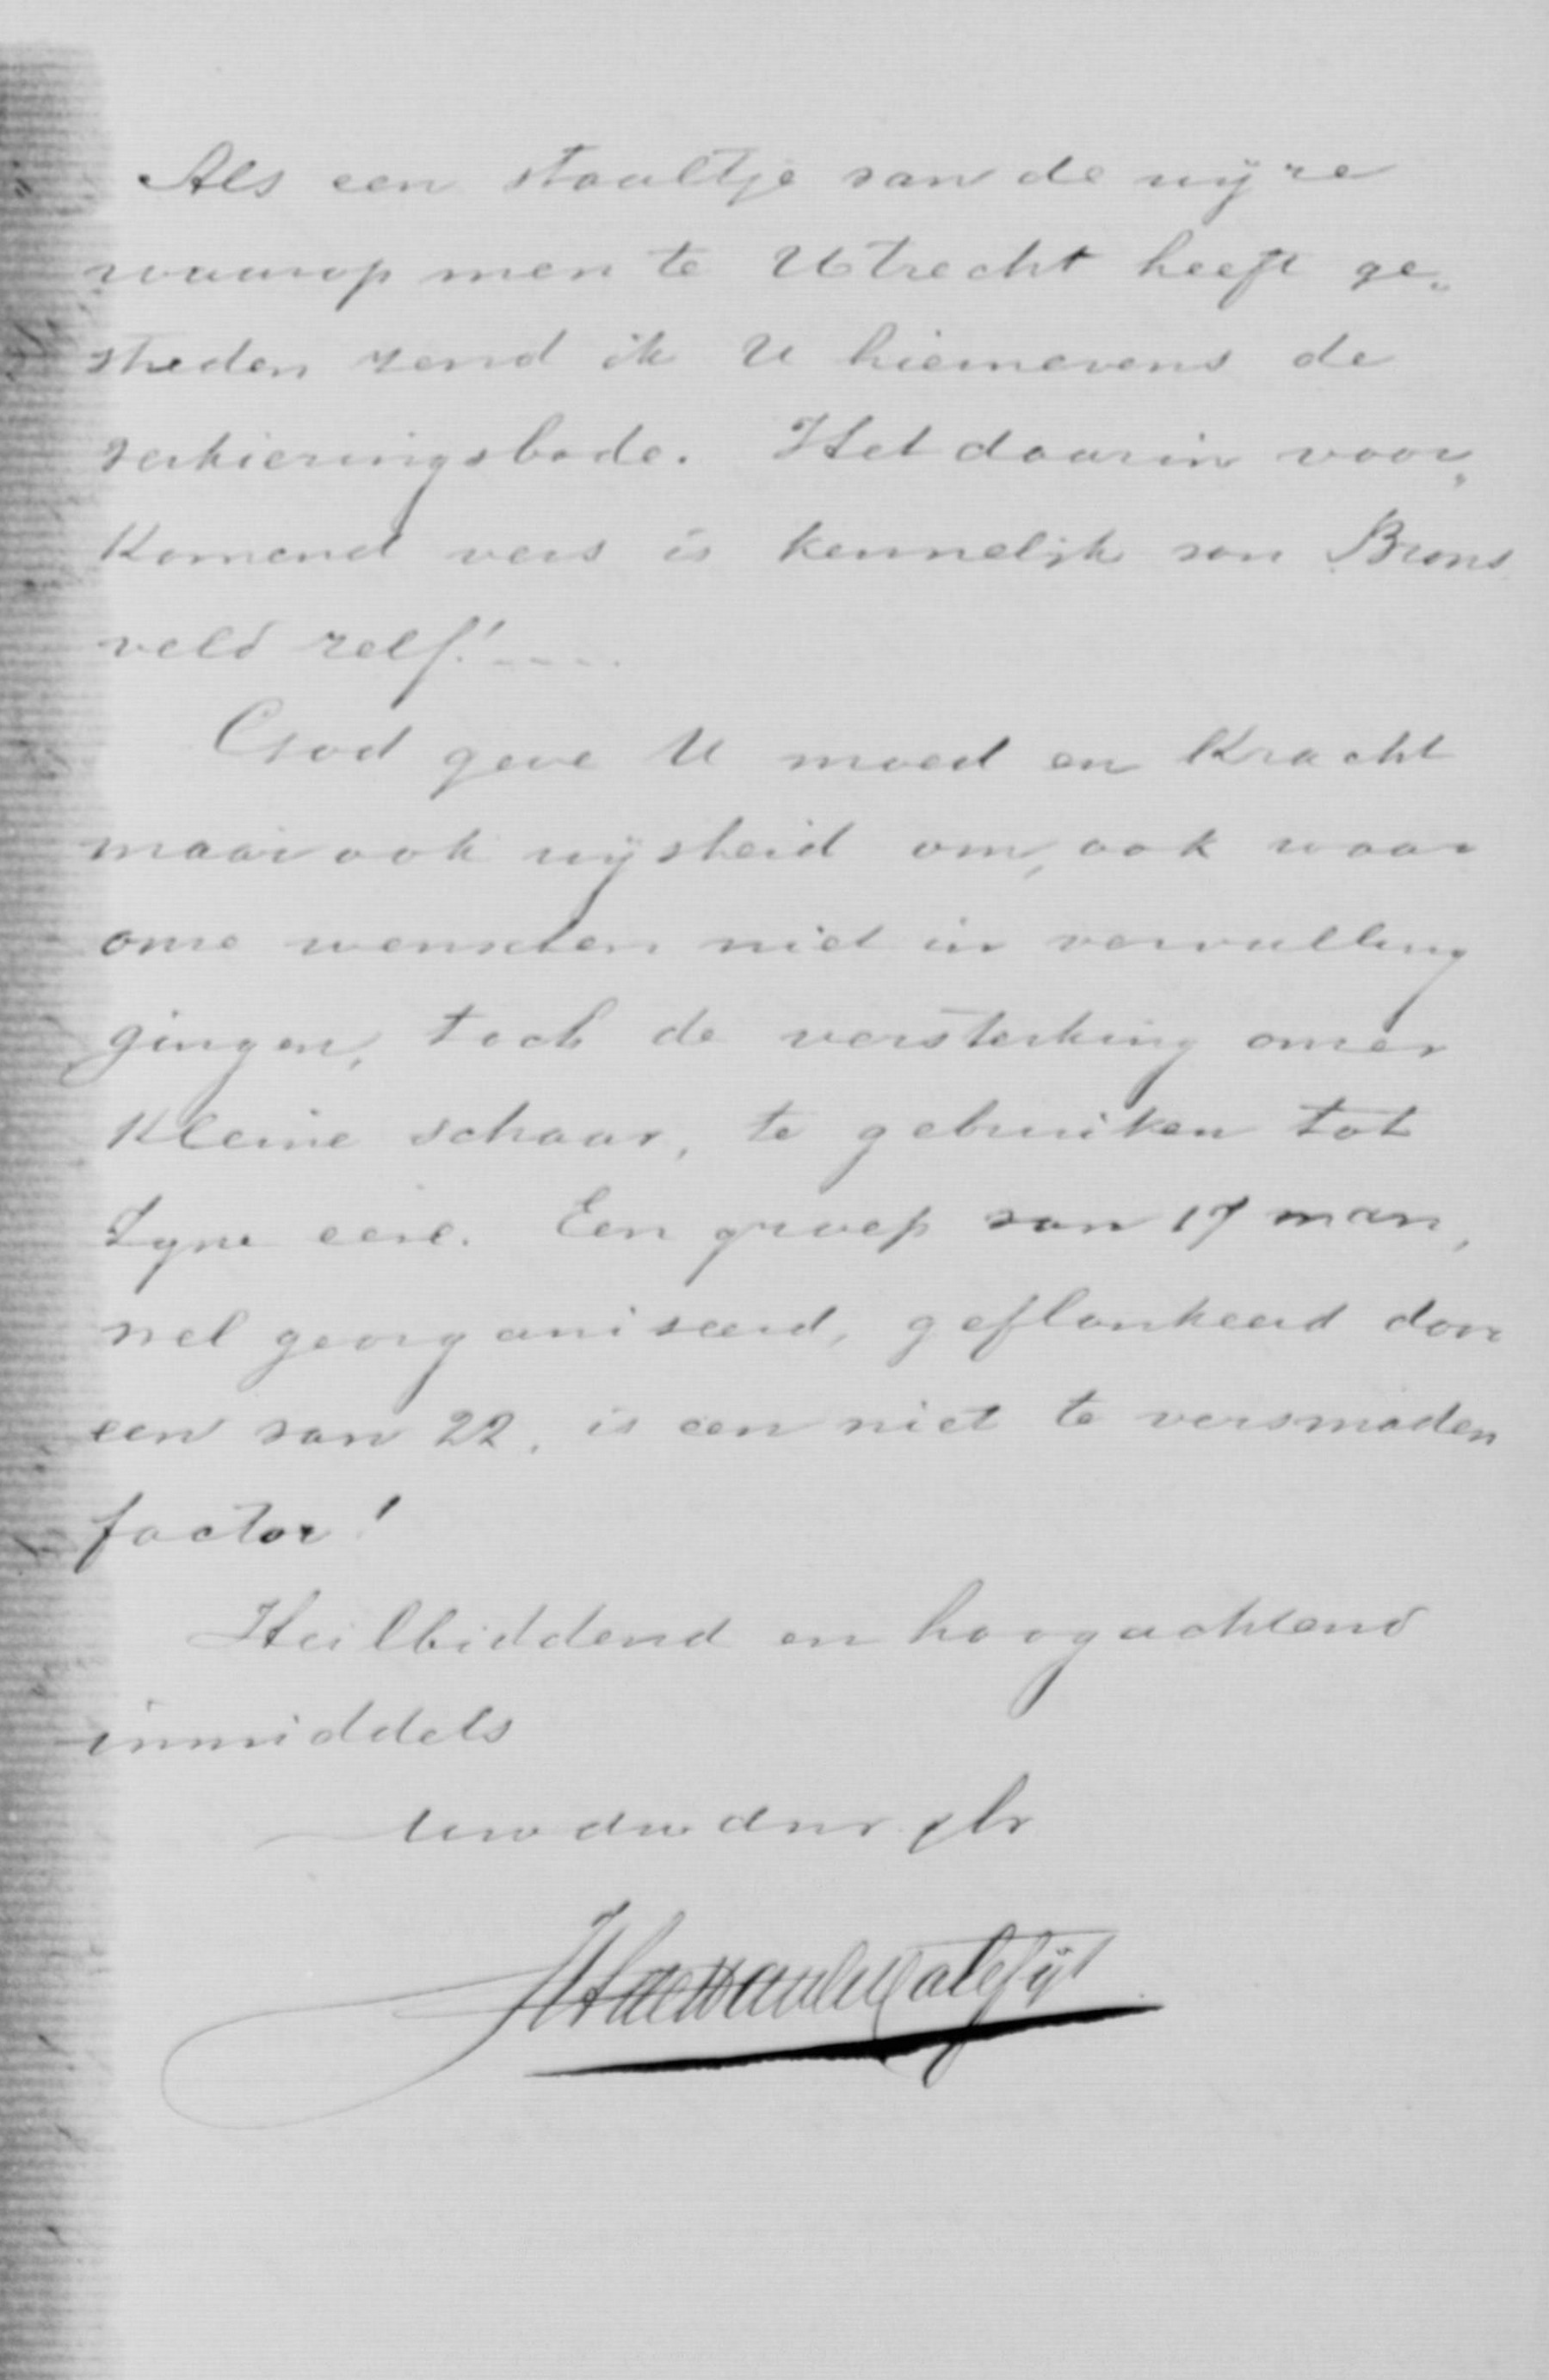 Als een staaltje van de wijze
waarop men te Utrecht heeft ge„
streden zend ik U hiernevens de
Verkiezingsbode. Het daarin voor„
komend vers is kennelijk van Brons
veld zelf!....
God geve U moed en kracht
maar ook wijsheid om, ook waar
onze wenschen niet in vervulling
gingen, toch de versterking onzer
kleine schaar, te gebruiken tot
Zijne eere. Een groep van 17 man,
wel georganiseerd, geflankeerd door
een van 22, is een niet te versmaden
factor!
Heilbiddend en hoogachtend
inmiddels
Uw dw dnr